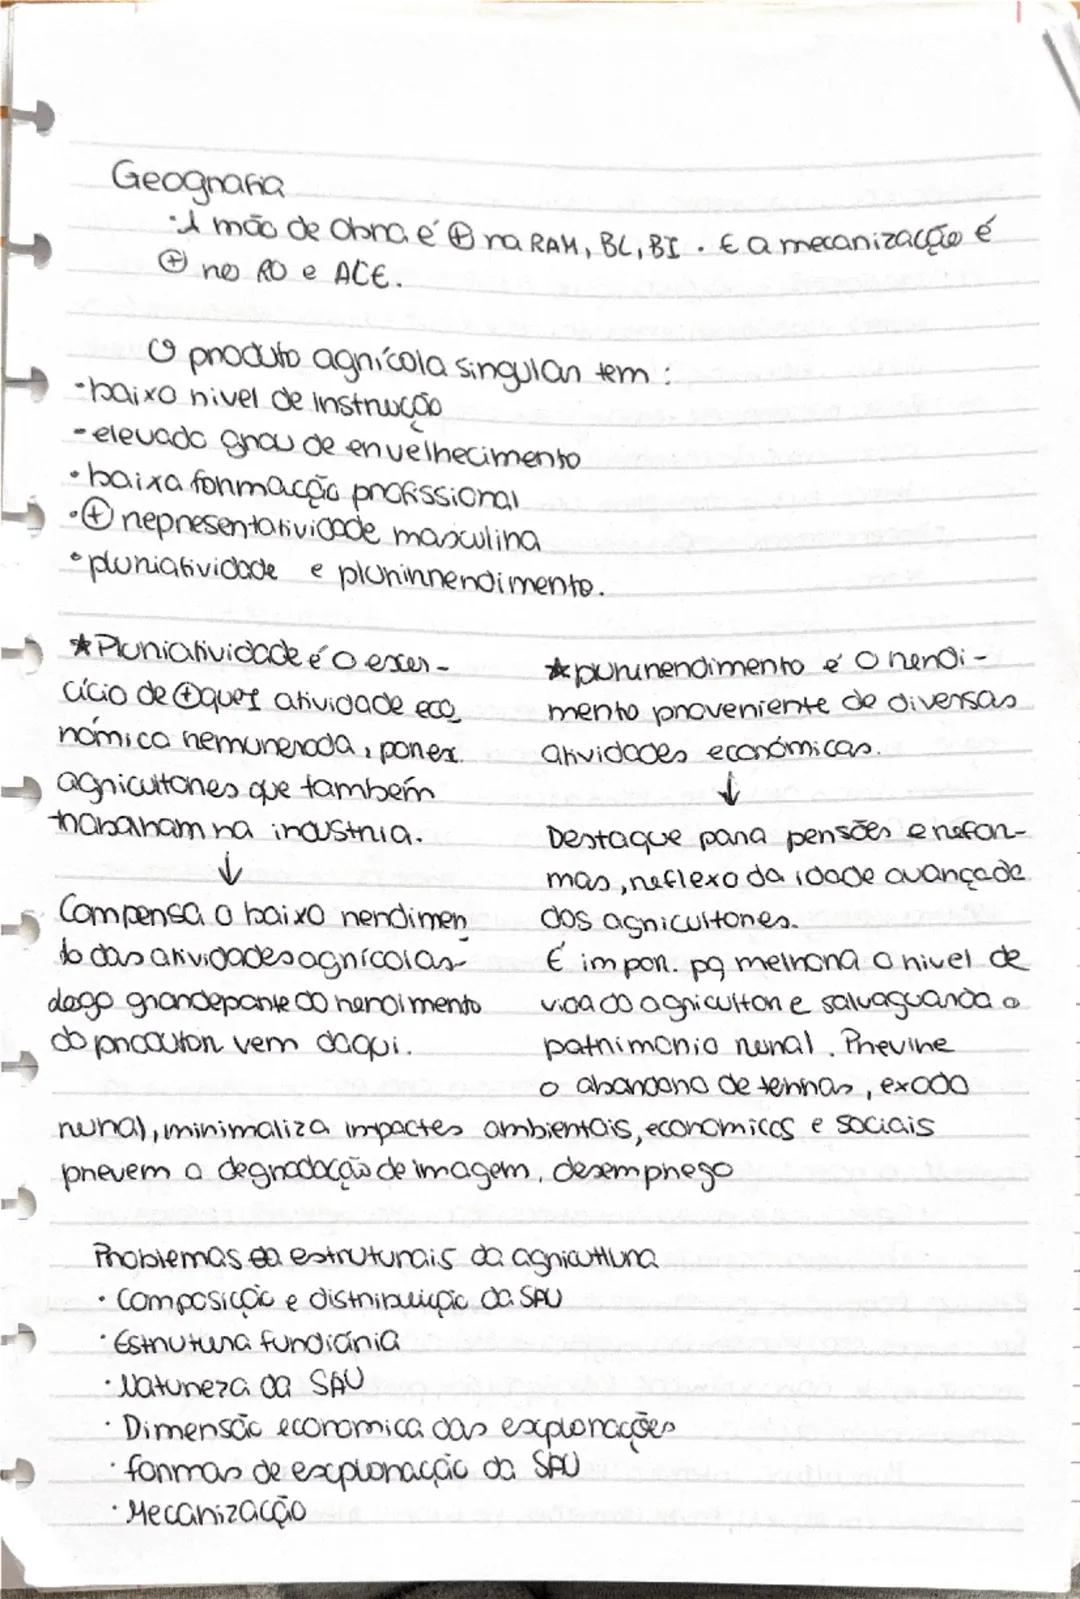 Geografia
·A mão de obra é ⊕ na RAM, BL, BI. E a mecanização é
⊕ no RO e ACE.
O produto agrícola singular tem:
-baixo nivel de instrução
-elevado grau de envelhecimento
·baixa formacção profissional
·⊕ representatividade masculina
·pluriatividade e plurirrendimento.
★Pluriatividade é o exer-
cício de ⊕ que 1 atividade eco
nómica remunerada, por ex.
agricultores que também
trabalham na industria.
↓
Compensa o baixo rendimen
to das atividades agrícolas-
logo grande parte do rendimento
do produtor vem daqui.
★plurirendimento é o rendi-
mento proveniente de diversas
atividades económicas.
↓
Destaque para pensões e refor-
mas, reflexo da idade avançada
dos agricultores.
É impor. pq melhora o nivel de
vida do agricultor e salvaguarda o
patrimonio rural. Previne
o abandono de terras, exodo
rural, minimaliza impactes ambientais, economicos e sociais
prevem a degradacção de imagem, desemprego
Problemas estruturais da agricultura
·Composição e distribuição da SAU
·Estrutura fundiária
·Natureza da SAU
·Dimensão economica das explorações
·formas de exploracção da SAU
·Mecanização